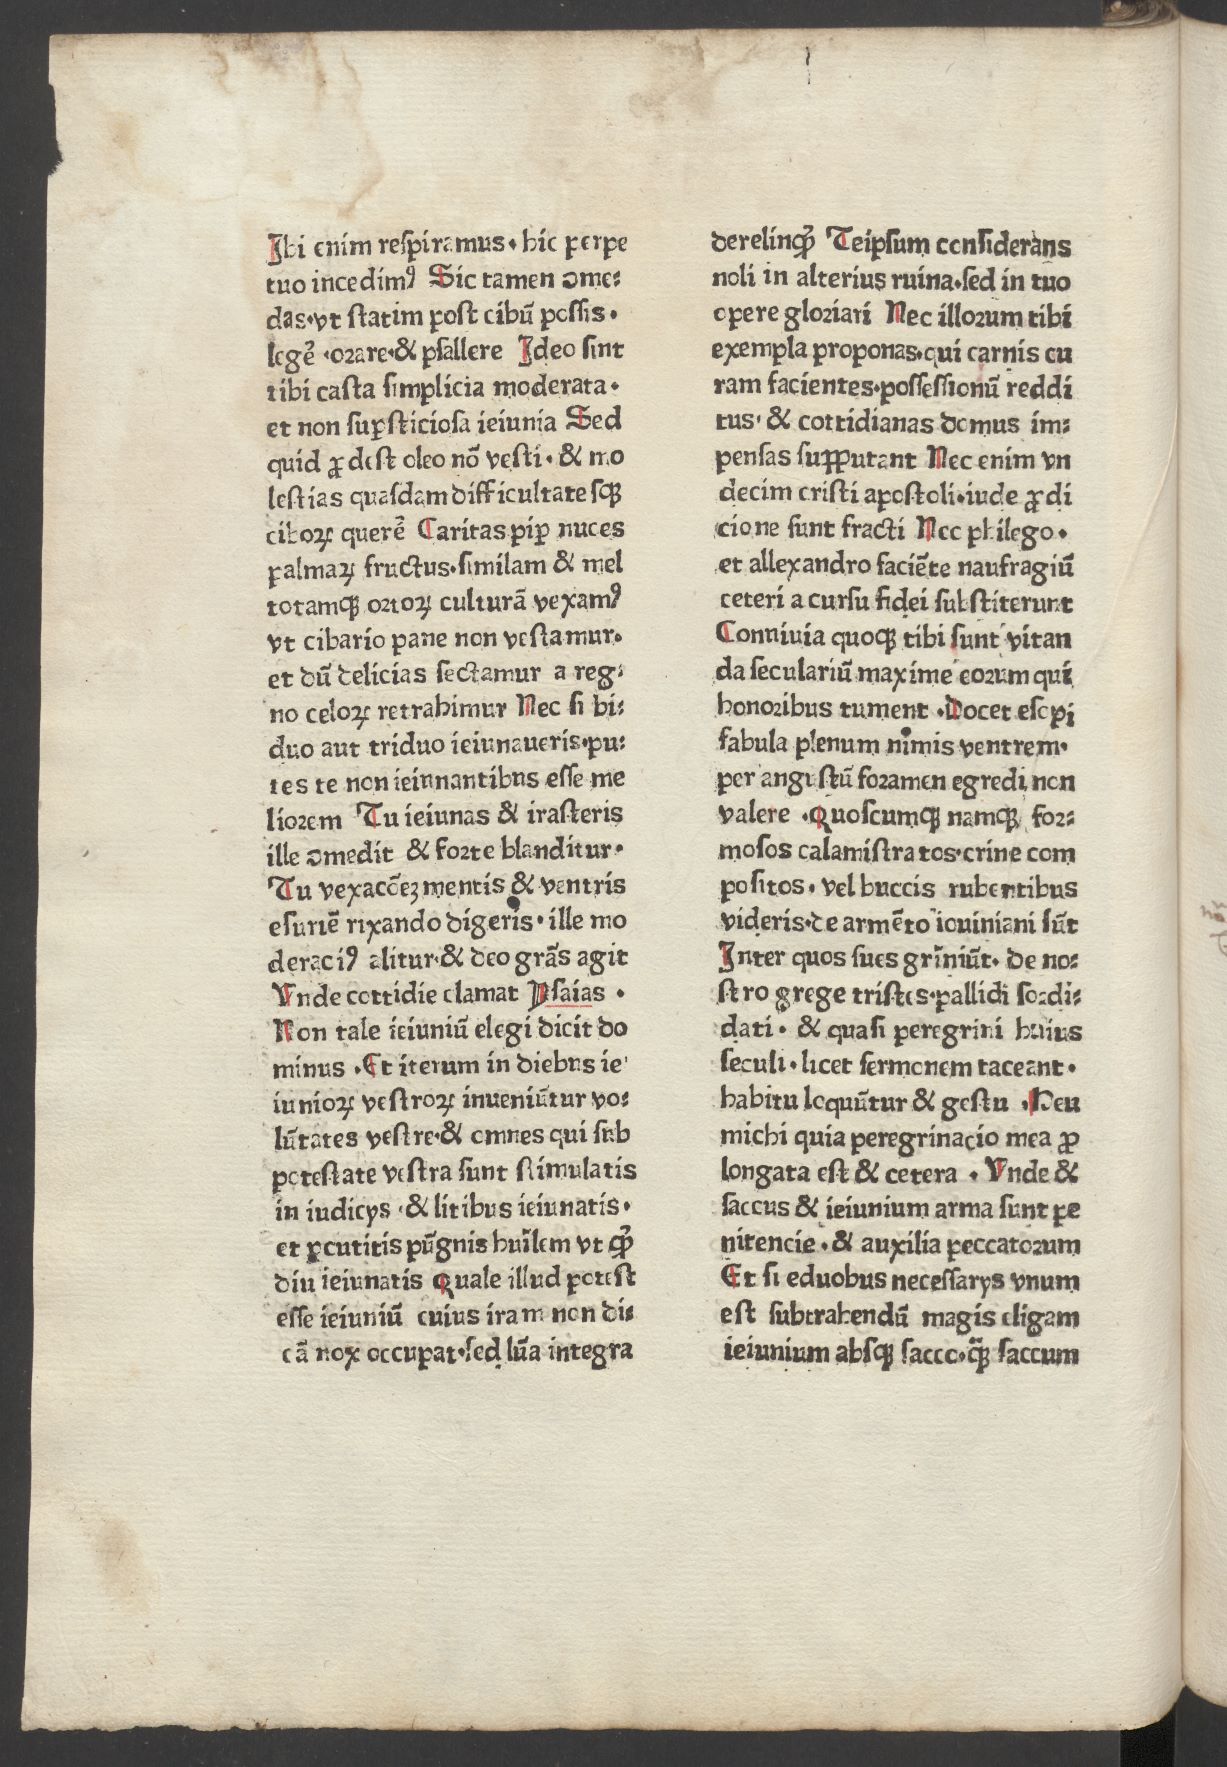 Ibi enim respiramus· hic perpe
tuo incedimꝰ Sic tamen ↄme⸗
das·vt statim post cibū possis·
legẽ ·orare·& psallere Ideo sint
tibi casta simplicia moderata·
et non suꝑsticiosa ieiunia Sed
quid ꝓdest oleo nō vesti· & mo
lestias quasdam difficultatesqꝫ
ciboꝝ querẽ Caritas piꝑ nuces
palmaꝝ fructus·similam & mel
totamqꝫ ortoꝝ culturā vexamꝰ
vt cibario pane non vestamur·
et dū delicias sectamur a reg⸗
no celoꝝ retrahimur Nec si bi⸗
duo aut triduo ieiunaueris·pu⸗
tes te non ieiunantibus esse me
liorem Tu ieiunas & irasteris
ille ↄmedit & forte blanditur·
Tu vexacōeꝫ mentis & ventris
esuriē rixando digeris· ille mo
deraciꝰ alitur·& deo grās agit
Vnde cottidie clamat Ysaias ·
Non tale ieiuniū elegi dicit do
minus ·Et iterum in diebus ie⸗
iunioꝝ vestroꝝ inueniūtur vo⸗
lūtates vestre·& omnes qui sub
potestate vestra sunt stimulatis
in iudicys ·& litibus ieiunatis·
et ꝑcutitis pūgnis huīlem vt qͣꝫ
diu ieiunatis Quale illud potest
esse ieiuniū cuius iram non di⸗
cā nox occupat·sed lūa integra
derelinqͣꝫ Teipsum considerans
noli in alterius ruina·sed in tuo
opere gloriari Nec illorum tibi
exempla proponas·qui carnis cu
ram facientes·possessionū reddi
tus· & cottidianas domus im⸗
pensas supputant Nec enim vn
decim cristi apostoli·iude ꝓdi
cione sunt fracti Nec philego·
et allexandro faciēte naufragiū
ceteri a cursu fidei substiterunt
Conniuia quoqꝫ tibi sunt vitan
da seculariū maxime eorum qui
honoribus tument ·Docet esopi
fabula plenum nimis ventrem·
per angustū foramen egredi non
valere ·Quoscumqꝫ namqꝫ for⸗
mosos calamistratos·crine com
positos· vel buccis rubentibus
videris·de armēto iouiniani sūt
Inter quos sues grīniūt· de no⸗
stro grege tristes·pallidi sordi⸗
dati· & quasi peregrini huius
seculi· licet sermonem taceant·
habitu loquūtur & gestu ·Heu
michi quia peregrinacio mea ꝓ
longata est & cetera · Vnde &
saccus & ieiunium arma sunt pe
nitencie· & auxilia peccatorum
Et si eduobus necessarys vnum
est subtrahendū magis eligam
ieiunium absqꝫ sacco·qͣꝫ saccum